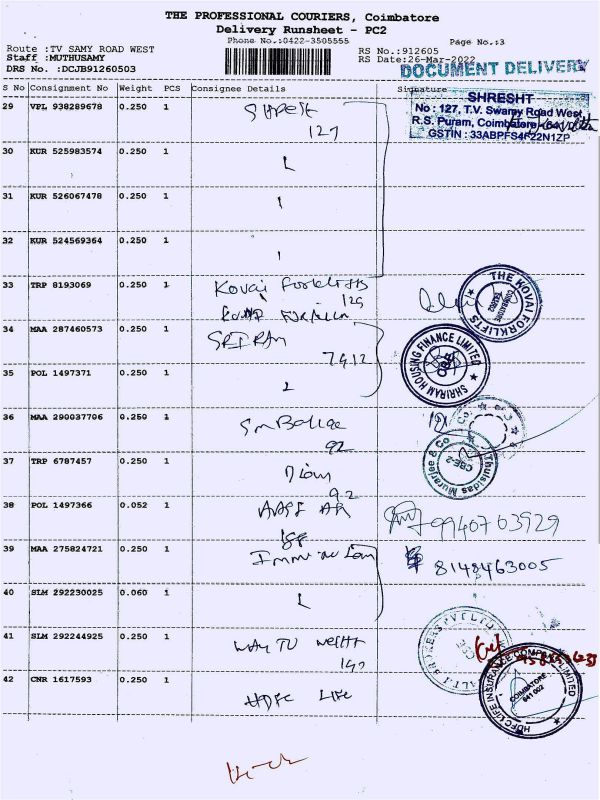 THE PROFESSIONAL COURIERS, Coimbatore
Delivery Runsheet - PC2
Phone No.:0422-3505555
Page No.:3
Route :TV SAMY ROAD WEST
RS No.:912605
Staff :MUTHUSAMY
RS Date:26-Mar-2022
DRS No. :DCJB91260503
DOCUMENT DELIVERY
S No Consignment No Weight PCS Consignee Details Signature
SHRESHT
No : 127, T.V. Swamy Road West,
R.S. Puram, Coimbatore - 641
GSTIN : 33ABPFS4F22N1ZP
29 VPL 938289678 0.250 1
127
30 KUR 525983574 0.250 1
31 KUR 526067478 0.250 1
32 KUR 524569364 0.250 1
33 TRP 8193069 0.250 1 Kovai Forklifts
129
THE KOVAI FORKLIFTS
COIMBATORE
34 MAA 287460573 0.250 1 SRIRAM
7412
SHRIRAM HOUSING FINANCE LIMITED
CBE
35 POL 1497371 0.250 1
36 MAA 290037706 0.250 1
92
37 TRP 6787457 0.250 1
92
Thulsidas Murarjee & Co
CBE-2
38 POL 1497366 0.052 1
9940763929
39 MAA 275824721 0.250 1
8148463005
40 SLM 292230025 0.060 1
41 SLM 292244925 0.250 1 WAY TO WEIGHT
BROKERS PVT LTD
42 CNR 1617593 0.250 1 HDFC LIFE
HDFC LIFE INSURANCE COMPANY LIMITED
COIMBATORE
641 002